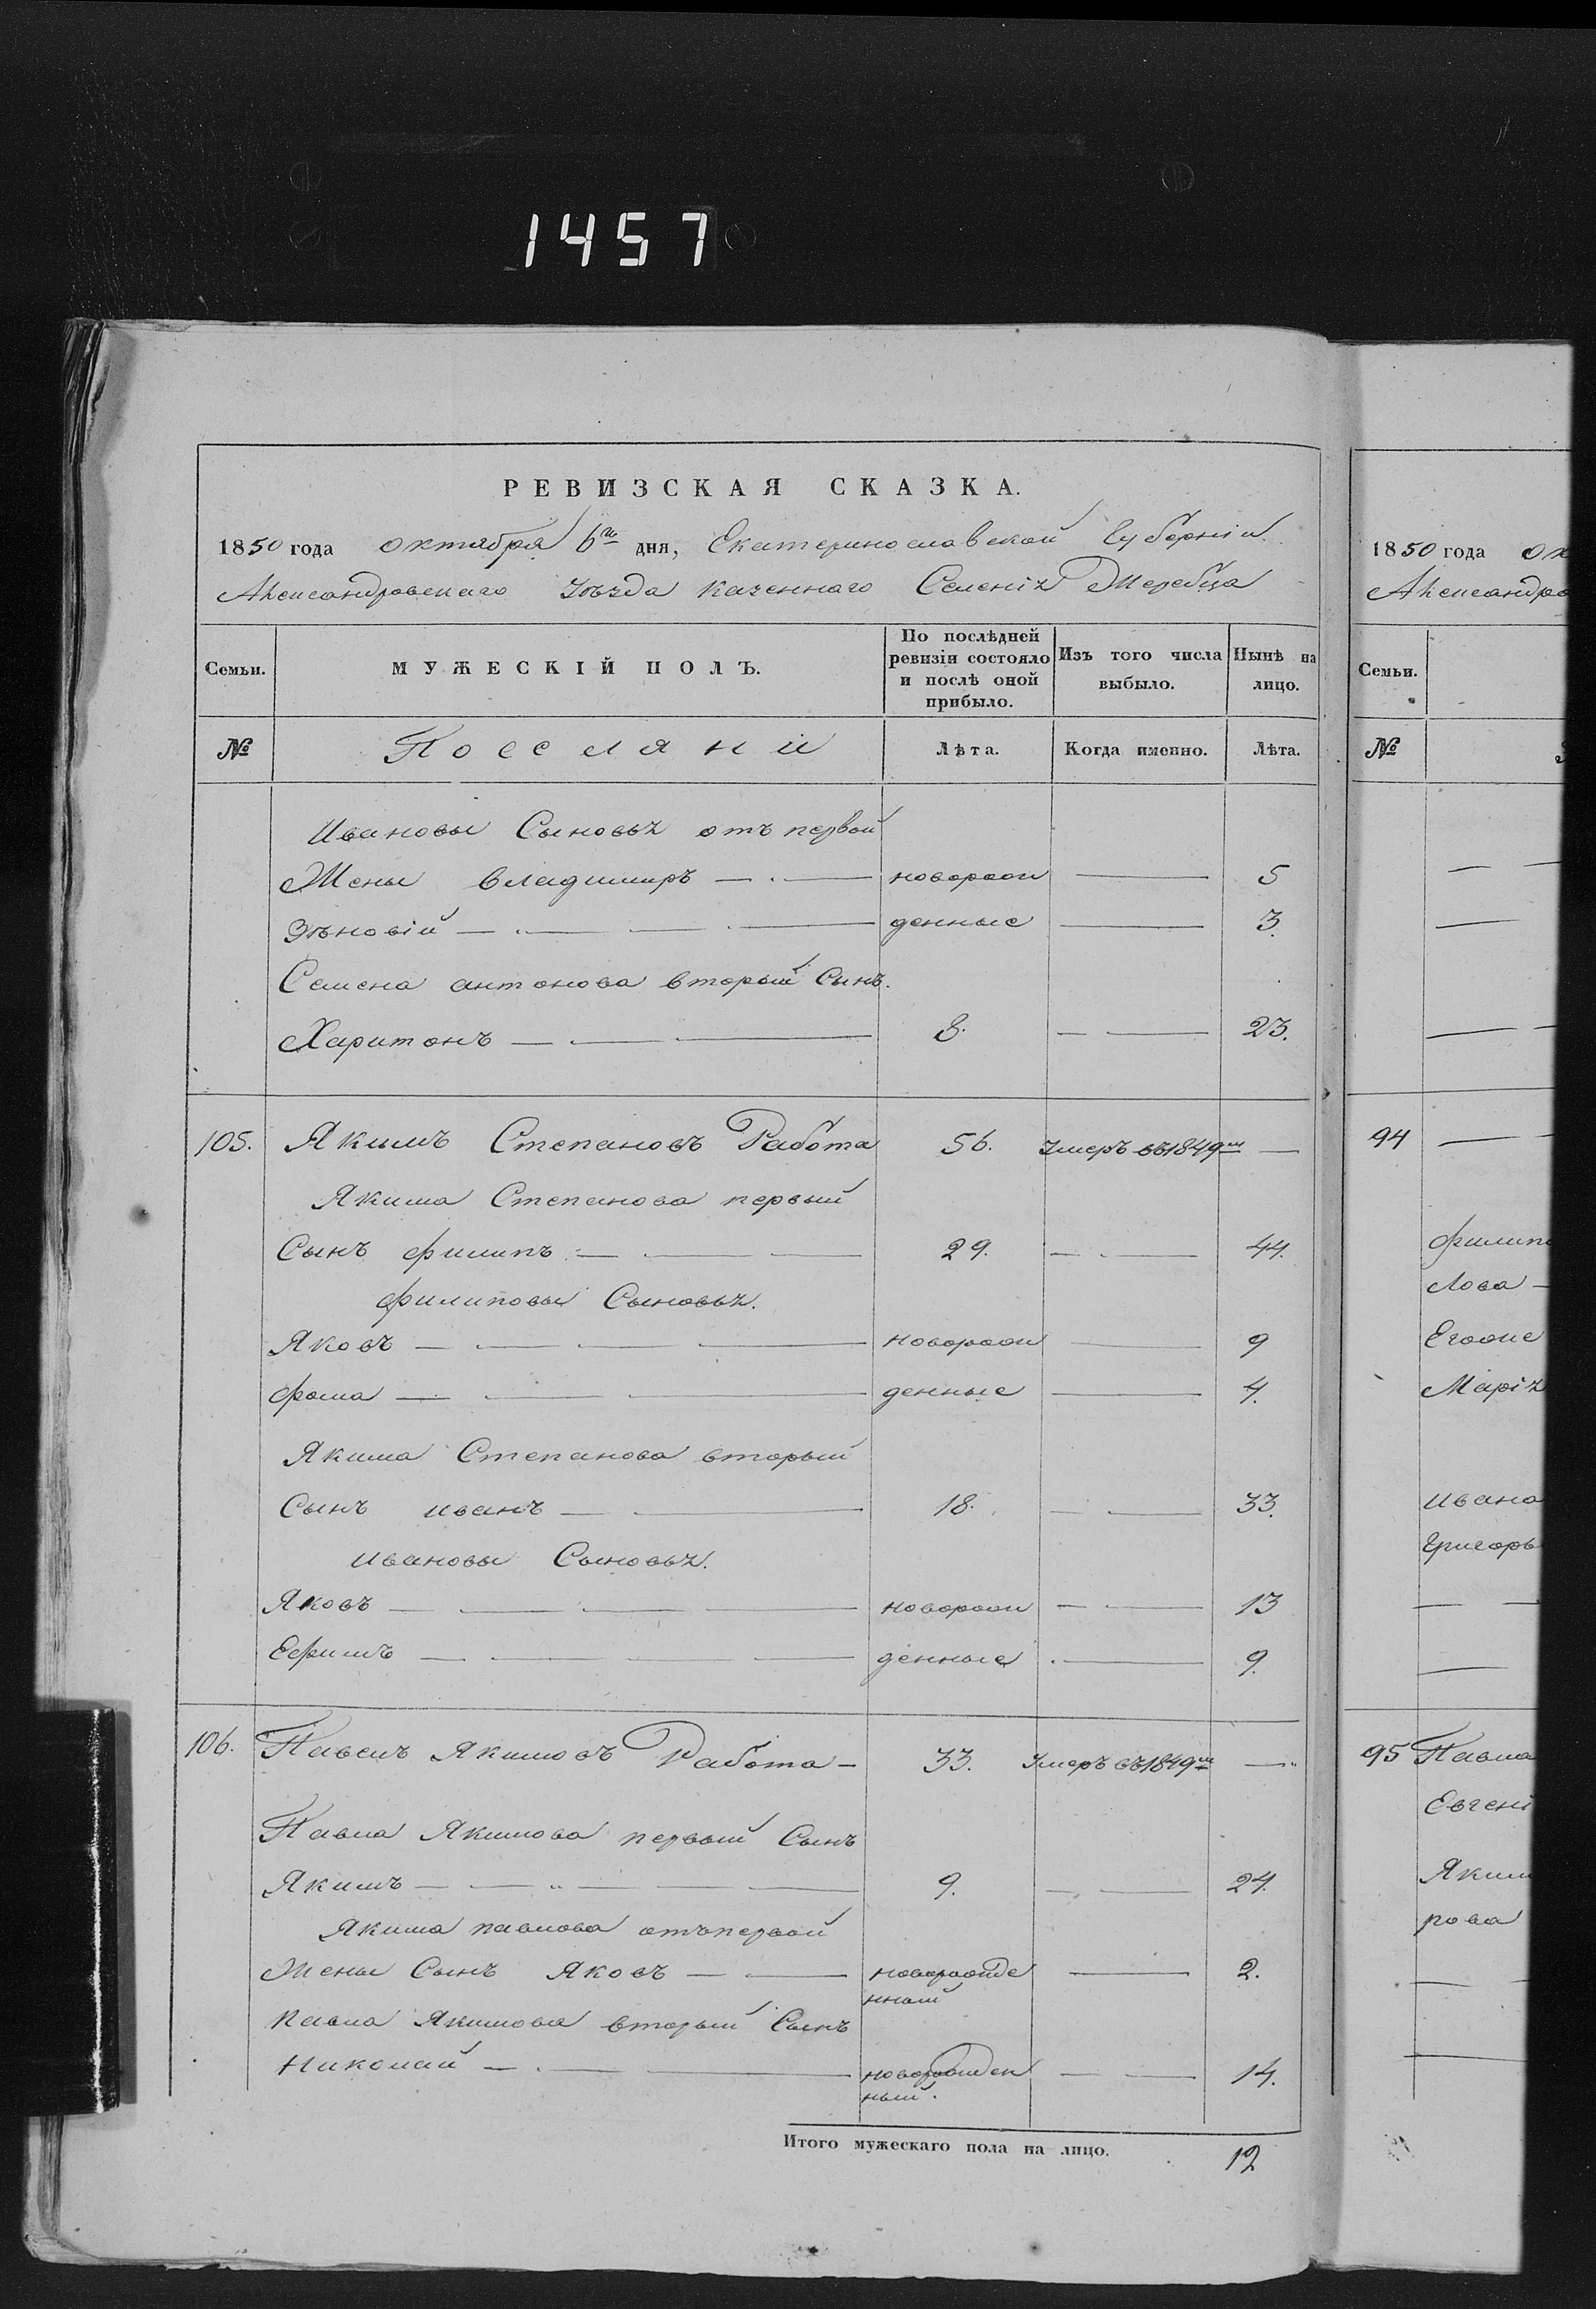 1457
РЕВИЗСКАЯ СКАЗКА.
1850 года октября 6го дня, Екатеринославской Губерніи
Александровскаго Уѣзда казеннаго Селенія Жеребца
Семьи. МУЖЕСКІЙ ПОЛЪ. По послѣдней ревизіи состояло и послѣ оной прибыло. Изъ того числа выбыло. Нынѣ на лицо.
№ Поселяни Лѣта. Когда именно. Лѣта.
Ивановы Сыновья отъ первой
Жены владимиръ — новорож — 5
Зѣновій — денные — 3.
Семена антонова вторый Сынъ.
Харитонъ — 8. — 23.
105. Якимъ Степановъ Работа 56. Умеръ въ 1849м —
Якима Степанова первый
Сынъ филипъ — 29. — 44.
филиповы Сыновья.
Яковъ — новорож — 9
фома — денные — 4.
Якима Степанова вторый
Сынъ иванъ — 18. — 33.
ивановы Сыновья.
Яковъ — новорож — 13
Ефимъ — денные — 9.
106. Павелъ Якимовъ Работа — 33. Умеръ въ 1849м —
Павла Якимова первый Сынъ
Якимъ — 9. — 24.
Якима павлова отъ первой
Жены Сынъ Яковъ — новорожде — 2.
нный
Павла Якимова вторый Сынъ
Николай — новорожден — 14.
ный.
Итого мужескаго пола на лицо. 12
1850 года ок
Александро
Семьи.
№
94 —
филипо
лова —
Егооис
Марія
ивано
Григорь
95 Павла
Евгені
Яким
рова